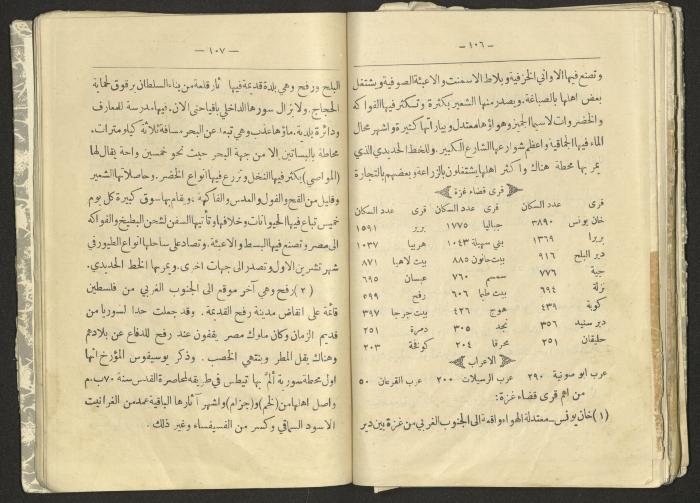 — ١٠٦ —
وتصنع فيها الاواني الخزفية وبلاط الاسمنت والاعبئة الصوفية ويشتغل
بعض اهلها بالصباغة. ويصدر منها الشعير بكثرة وتكثر فيها الفواكه
والخضروات لاسيما الجميز وهواؤها معتدل وبياراتها كثيرة واشهر محال
الماء فيها الجاقية واعظم شوارعها الشارع الكبير. وللخط الحديدي الذي
يمر بها محطة هناك واكثر اهلها يشتغلون بالزراعة وبعضهم بالتجارة
قرى قضاء غزة
قرى عدد السكان قرى عدد السكان قرى عدد السكان
خان يونس ٣٨٩٠ جباليا ١٧٧٥ برير ١٥٩١
بربرا ١٣٦٩ بني سهيلة ١٠٤٣ هربيا ١٠٣٧
دير البلح ٩١٦ بيت حانون ٨٨٥ بيت لاهيا ٨٧١
جية ٧٧٦ سمسم ٧٦٠ عبسان ٦٩٥
نزلة ٦٩٤ بيت طيما ٦٠٦ رفح ٥٩٩
كوبة ٤٣٩ هوج ٤٢٦ بيت جرجا ٣٩٧
دير سنيد ٣٥٦ نجد ٣٠٥ دمرة ٢٥١
حليقان ٢٥١ محرقا ٢٠٤ كوفخة ٢٠٣
الاعراب
عرب ابو صونية ٢٩٠ عرب الرسيلات ٢٠٠ عرب القرعان ٥٠
من اهم قرى قضاء غزة:
(١) خان يونس_معتدلة الهواء واقعة الى الجنوب الغربي من غزة بين دير
— ١٠٧ —
البلح ورفح وهي بلدة قديمة فيها آثار قلعة من بناء السلطان برقوق لحماية
الحجاج. ولا يزال سورها الداخلي باقيا حتى الان. فيها مدرسة للمعارف
ودائرة بلدية. ماؤها عذب وهي تبعد عن البحر مسافة ثلاثة كيلومترات.
محاطة بالبساتين الا من جهة البحر حيث نحو خمسين واحة يقال لها
(المواصي) يكثر فيها النخل وتزرع فيها انواع الخضر. وحاصلاتها الشعير
وقليل من القمح والفول والعدس والفاكهة. ويقام بها سوق كبيرة كل يوم
خميس تباع فيها الحيوانات وخلافها وتأتيها السفن لشحن البطيخ والفواكه
الى مصر وتصنع فيها البسط والاعبئة. وتصاد على ساحلها انواع الطيور في
شهر تشرين الاول وتصدر الى جهات اخرى. ويمر بها الخط الحديدي.
(٢) رفح وهي آخر موقع الى الجنوب الغربي من فلسطين
قائمة على انقاض مدينة رفح القديمة. وقد جعلت حدا لسوريا من
قديم الزمان وكان ملوك مصر يقفون عند رفح للدفاع عن بلادهم
وهناك يقل المطر وينتهي الخصب. وذكر يوسيفوس المؤرخ انها
اول محطة سورية ألمّ بها تيطس في طريقه لمحاصرة القدس سنة ٧٠ ب.م
واصل اهلها من (لخم) و(جزام) واشهر آثارها الباقية عمد من الغرانيت
الاسود السماقي وكسر من الفسيفساء وغير ذلك.